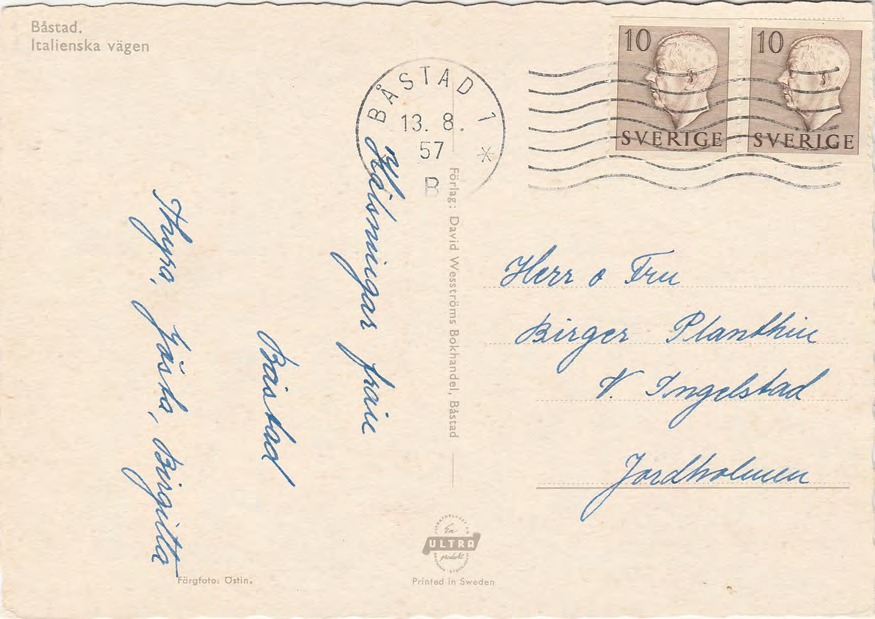 Båstad.
Italienska vägen
BÅSTAD 1
13. 8.
57
B
10
SVERIGE
10
SVERIGE
Hälsningar från
Båstad
Thyra, Gösta, Birgitta
Förlag: David Wesströms Bokhandel, Båstad
Herr o Fru
Birger Planthin
V. Ingelstad
Jordholmen
En
ULTRA
produkt
Färgfoto: Östin.
Printed in Sweden